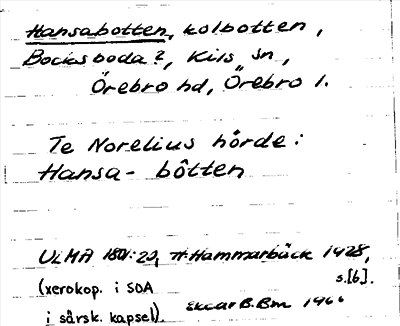 Hansabotten, kolbotten,
Bocksboda?, Kils sn,
Örebro hd, Örebro l.
Te Norelius hörde:
Hansa- bôtten
ULMA 1801:20, H. Hammarbäck 1928,
s.[6].
(xerokop. i SOA
i särsk. kapsel).
B.Bm 1966